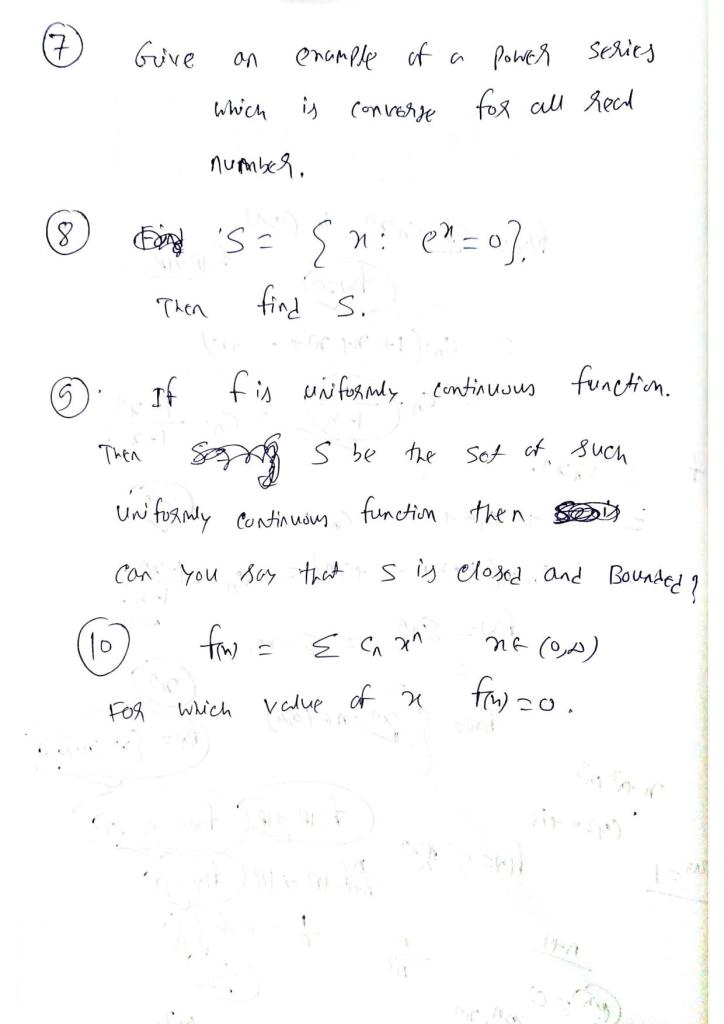 7 Give an example of a power series
which is converge for all real
number.
8 S = { x : e^x = 0 }.
Then find S.
9. If f is uniformly continuous function.
Then S be the set of such
uniformly continuous function then
can you say that S is closed and Bounded?
10 f(x) = Σ Cn x^n x ∈ (0,∞)
For which value of x f(x) = 0.